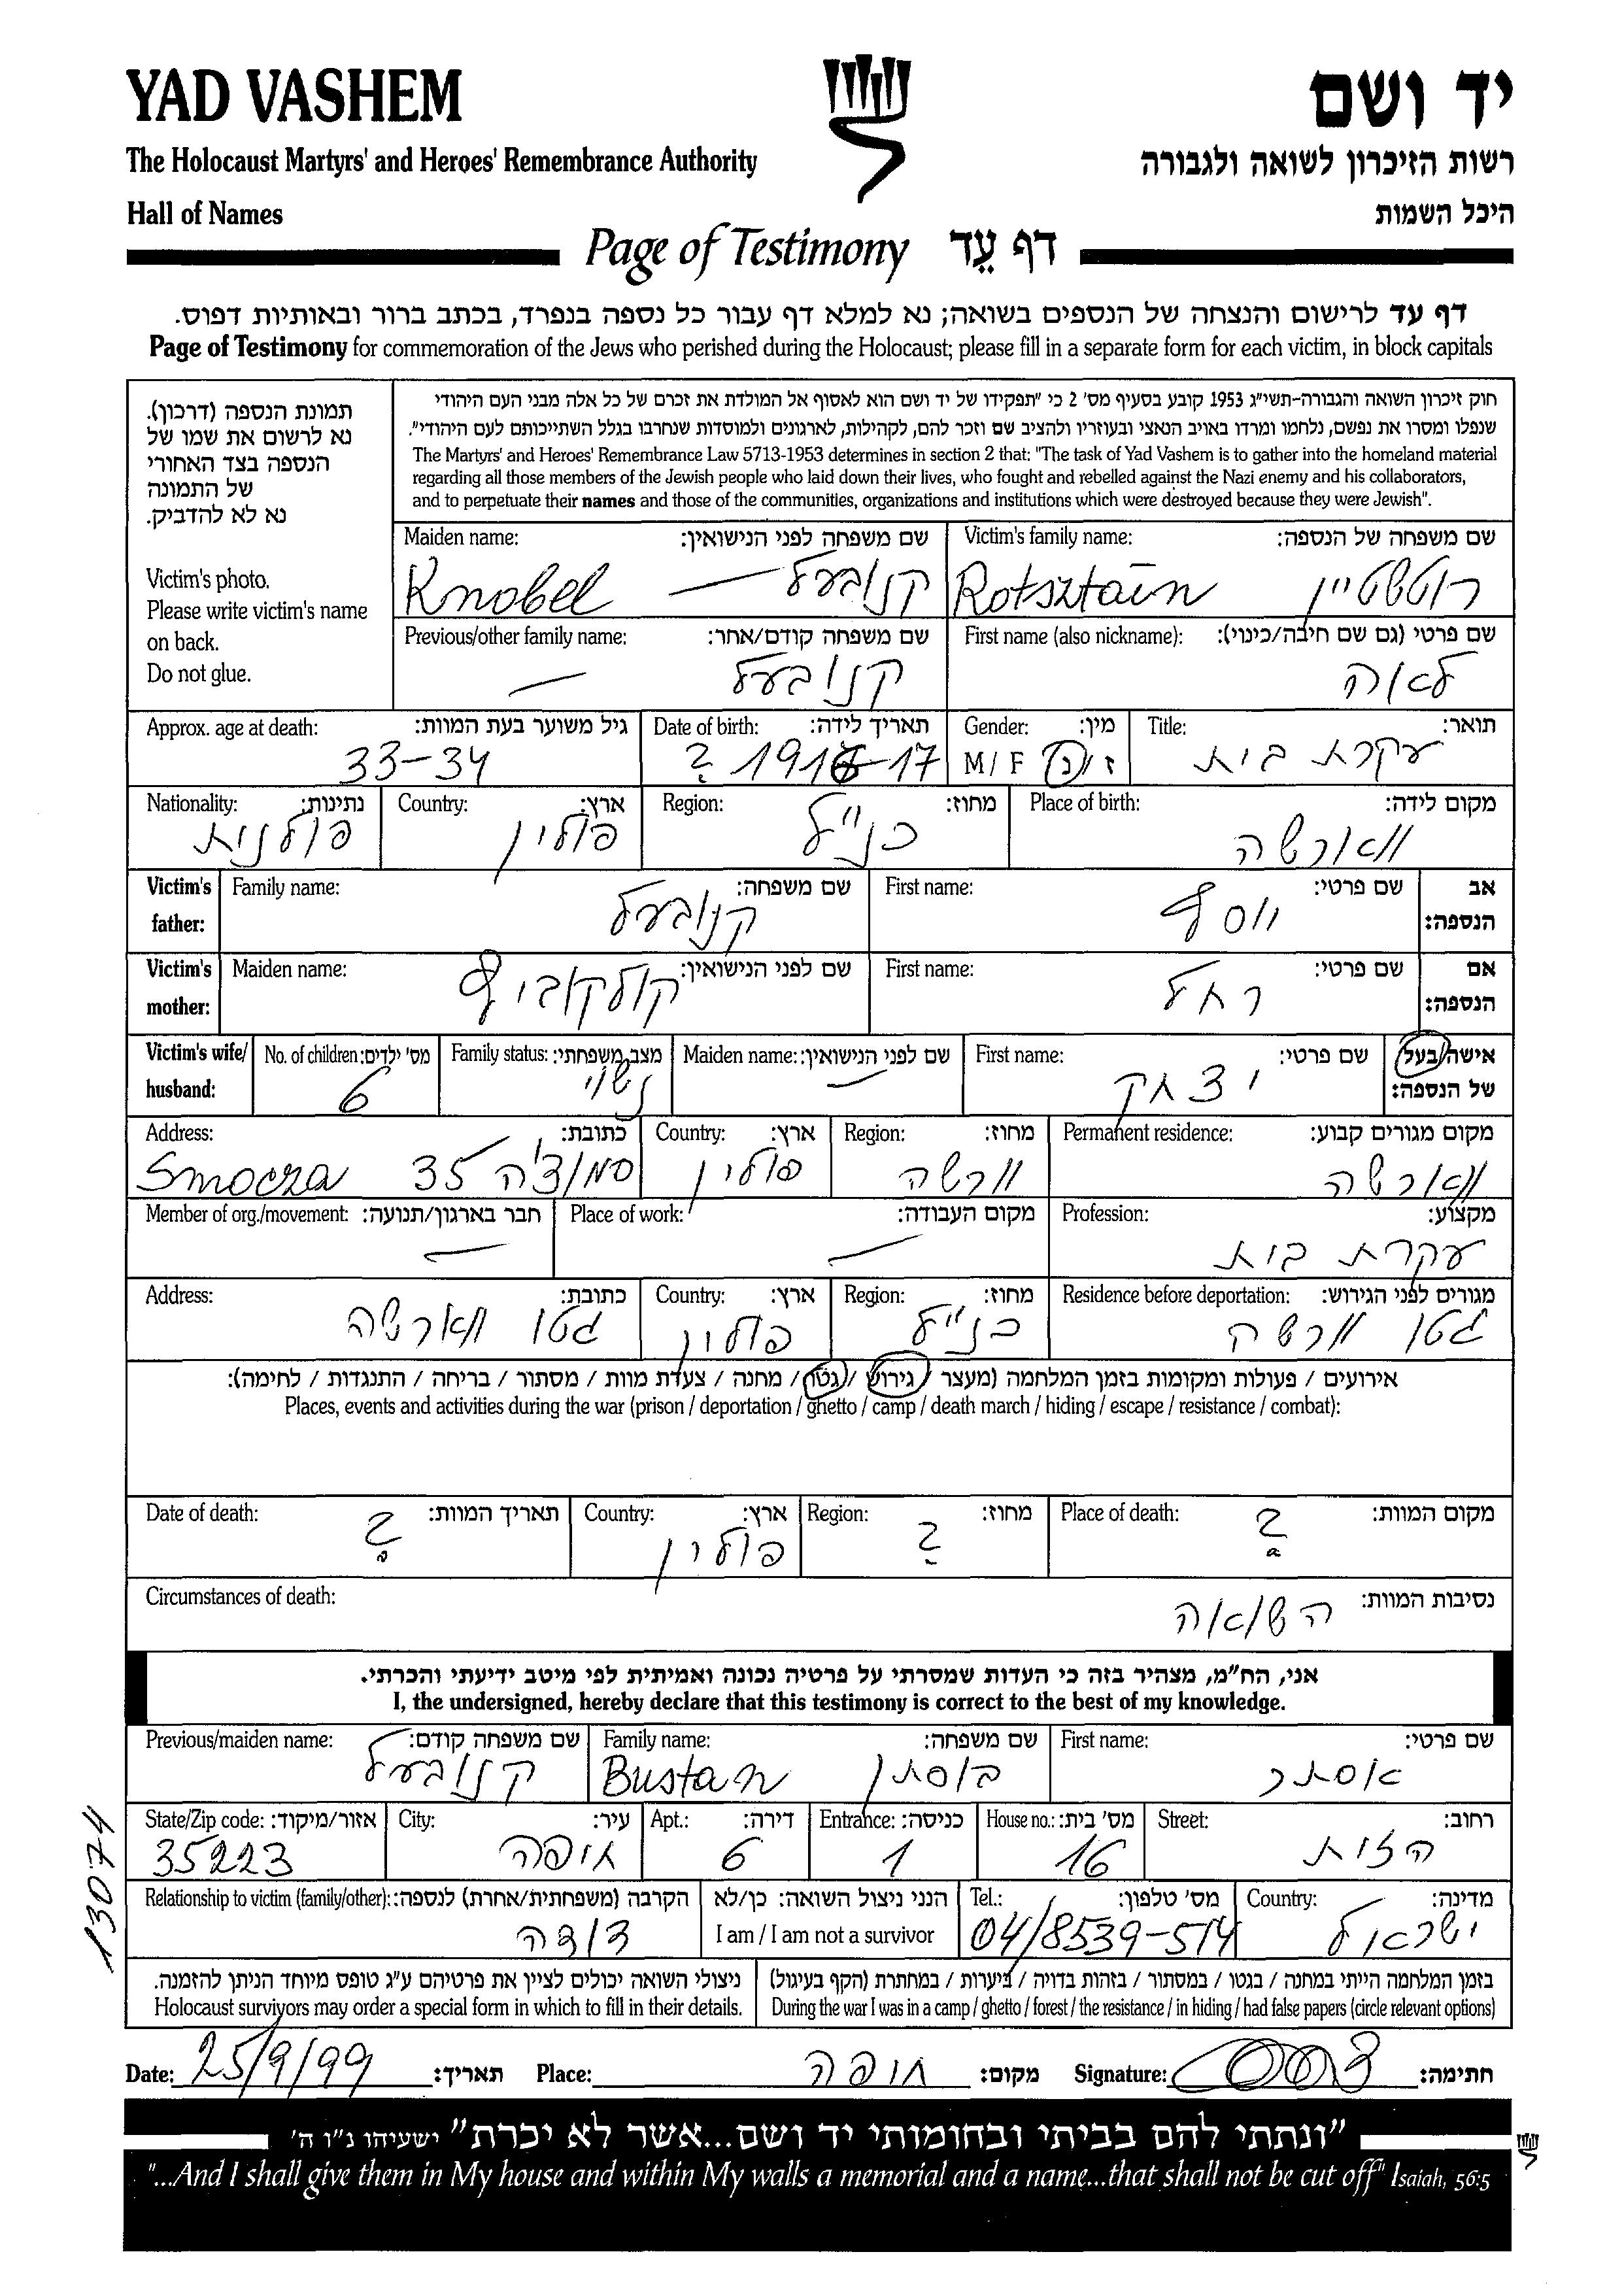 YAD VASHEM
יד ושם
The Holocaust Martyrs' and Heroes' Remembrance Authority
רשות הזיכרון לשואה ולגבורה
Hall of Names
היכל השמות
Page of Testimony דף עֵד
דף עד לרישום והנצחה של הנספים בשואה; נא למלא דף עבור כל נספה בנפרד, בכתב ברור ובאותיות דפוס.
Page of Testimony for commemoration of the Jews who perished during the Holocaust; please fill in a separate form for each victim, in block capitals
תמונת הנספה (דרכון).
נא לרשום את שמו של
הנספה בצד האחורי
של התמונה
נא לא להדביק.
Victim's photo.
Please write victim's name
on back.
Do not glue.
חוק זיכרון השואה והגבורה-תשי״ג 1953 קובע בסעיף מס' 2 כי "תפקידו של יד ושם הוא לאסוף אל המולדת את זכרם של כל אלה מבני העם היהודי
שנפלו ומסרו את נפשם, נלחמו ומרדו באויב הנאצי ובעוזריו ולהציב שם וזכר להם, לקהילות, לארגונים ולמוסדות שנחרבו בגלל השתייכותם לעם היהודי".
The Martyrs' and Heroes' Remembrance Law 5713-1953 determines in section 2 that: "The task of Yad Vashem is to gather into the homeland material
regarding all those members of the Jewish people who laid down their lives, who fought and rebelled against the Nazi enemy and his collaborators,
and to perpetuate their names and those of the communities, organizations and institutions which were destroyed because they were Jewish".
Maiden name: שם משפחה לפני הנישואין: Victim's family name: שם משפחה של הנספה:
Knobel — קנובעל Rotsztain רוטשטיין
Previous/other family name: שם משפחה קודם/אחר: First name (also nickname): שם פרטי (גם שם חיבה/כינוי):
— קנובעל לאה
Approx. age at death: גיל משוער בעת המוות: Date of birth: תאריך לידה: Gender: מין: Title: תואר:
33-34 ? 1916-17 M / F ז / נ עקרת בית
Nationality: נתינות: Country: ארץ: Region: מחוז: Place of birth: מקום לידה:
פולנית פולין כנ״ל ווארשה
Victim's father: Family name: שם משפחה: First name: שם פרטי: אב הנספה:
קנובעל יוסף
Victim's mother: Maiden name: שם לפני הנישואין: First name: שם פרטי: אם הנספה:
קולקוביץ רחל
Victim's wife/ husband: No. of children: מס' ילדים: Family status: מצב משפחתי: Maiden name: שם לפני הנישואין: First name: שם פרטי: אישה/בעל של הנספה:
6 נשוי — יצחק
Address: כתובת: Country: ארץ: Region: מחוז: Permanent residence: מקום מגורים קבוע:
Smocza 35 סמוצ'ה פולין וורשה ווארשה
Member of org./movement: חבר בארגון/תנועה: Place of work: מקום העבודה: Profession: מקצוע:
— — עקרת בית
Address: כתובת: Country: ארץ: Region: מחוז: Residence before deportation: מגורים לפני הגירוש:
גטו ווארשה פולין כנ״ל גטו וורשה
אירועים / פעולות ומקומות בזמן המלחמה (מעצר / גירוש / גטו / מחנה / צעדת מוות / מסתור / בריחה / התנגדות / לחימה):
Places, events and activities during the war (prison / deportation / ghetto / camp / death march / hiding / escape / resistance / combat):
Date of death: תאריך המוות: Country: ארץ: Region: מחוז: Place of death: מקום המוות:
? פולין ? ?
Circumstances of death: נסיבות המוות:
השואה
אני, הח״מ, מצהיר בזה כי העדות שמסרתי על פרטיה נכונה ואמיתית לפי מיטב ידיעתי והכרתי.
I, the undersigned, hereby declare that this testimony is correct to the best of my knowledge.
Previous/maiden name: שם משפחה קודם: Family name: שם משפחה: First name: שם פרטי:
קנובעל Bustan בוסתן אסתר
State/Zip code: אזור/מיקוד: City: עיר: Apt.: דירה: Entrance: כניסה: House no.: מס' בית: Street: רחוב:
35223 חיפה 6 1 16 הזית
Relationship to victim (family/other): הקרבה (משפחתית/אחרת) לנספה: הנני ניצול השואה: כן/לא Tel.: מס' טלפון: Country: מדינה:
דודה I am / I am not a survivor 04/8539-514 ישראל
ניצולי השואה יכולים לציין את פרטיהם ע״ג טופס מיוחד הניתן להזמנה. בזמן המלחמה הייתי במחנה / בגטו / במסתור / בזהות בדויה / ביערות / במחתרת (הקף בעיגול)
Holocaust survivors may order a special form in which to fill in their details. During the war I was in a camp / ghetto / forest / the resistance / in hiding / had false papers (circle relevant options)
Date: 25/9/99 תאריך: Place: חיפה מקום: Signature: חתימה:
13074
"ונתתי להם בביתי ובחומותי יד ושם...אשר לא יכרת" ישעיהו נ״ו ה'
"...And I shall give them in My house and within My walls a memorial and a name...that shall not be cut off" Isaiah, 56:5